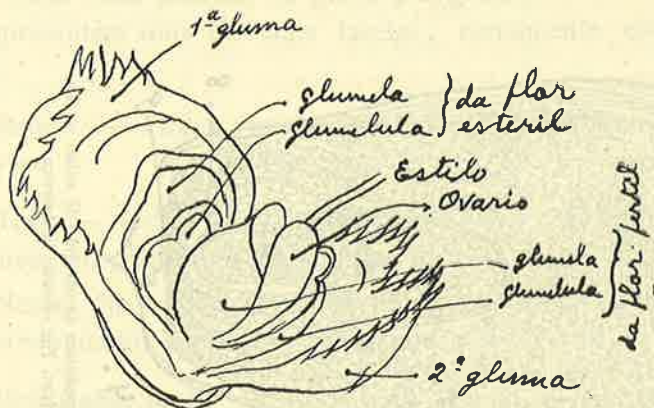 1ª gluma
glumela } da flor
glumelula } esteril
Estilo
Ovario
glumela
glumelula
da flor fertil
2ª gluma